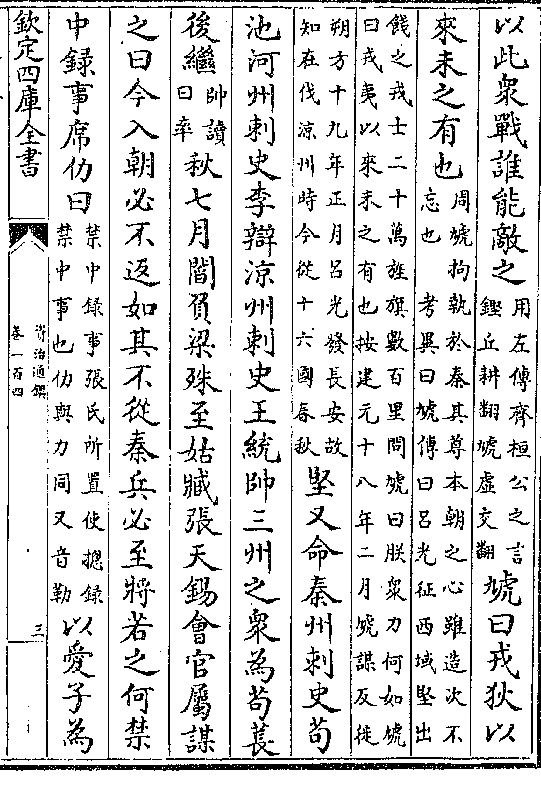 以此衆戰誰能敵之用左傳齊桓公之言鏗丘耕翻虓虛交翻虓曰戎狄以
來未之有也周虓拘執於秦其尊本朝之心雖造次不忘也考異曰虓傳曰吕光征西域堅出
餞之戎士二十萬旌旗數百里問虓曰朕衆力何如虓曰戎夷以來未之有也按建元十八年二月虓謀反徙
朔方十九年正月吕光發長安故知在伐涼州時今從十六國春秋堅又命秦州刺史苟
池河州刺史李辯涼州刺史王統帥三州之衆為苟萇
後繼帥讀曰率秋七月閻負梁殊至姑臧張天錫會官屬謀
之曰今入朝必不返如其不從秦兵必至將若之何禁
中録事席仂曰禁中録事張氏所置使摠録禁中事也仂與力同又音勒以愛子為
欽定四庫全書
資治通鑑
卷一百四
三